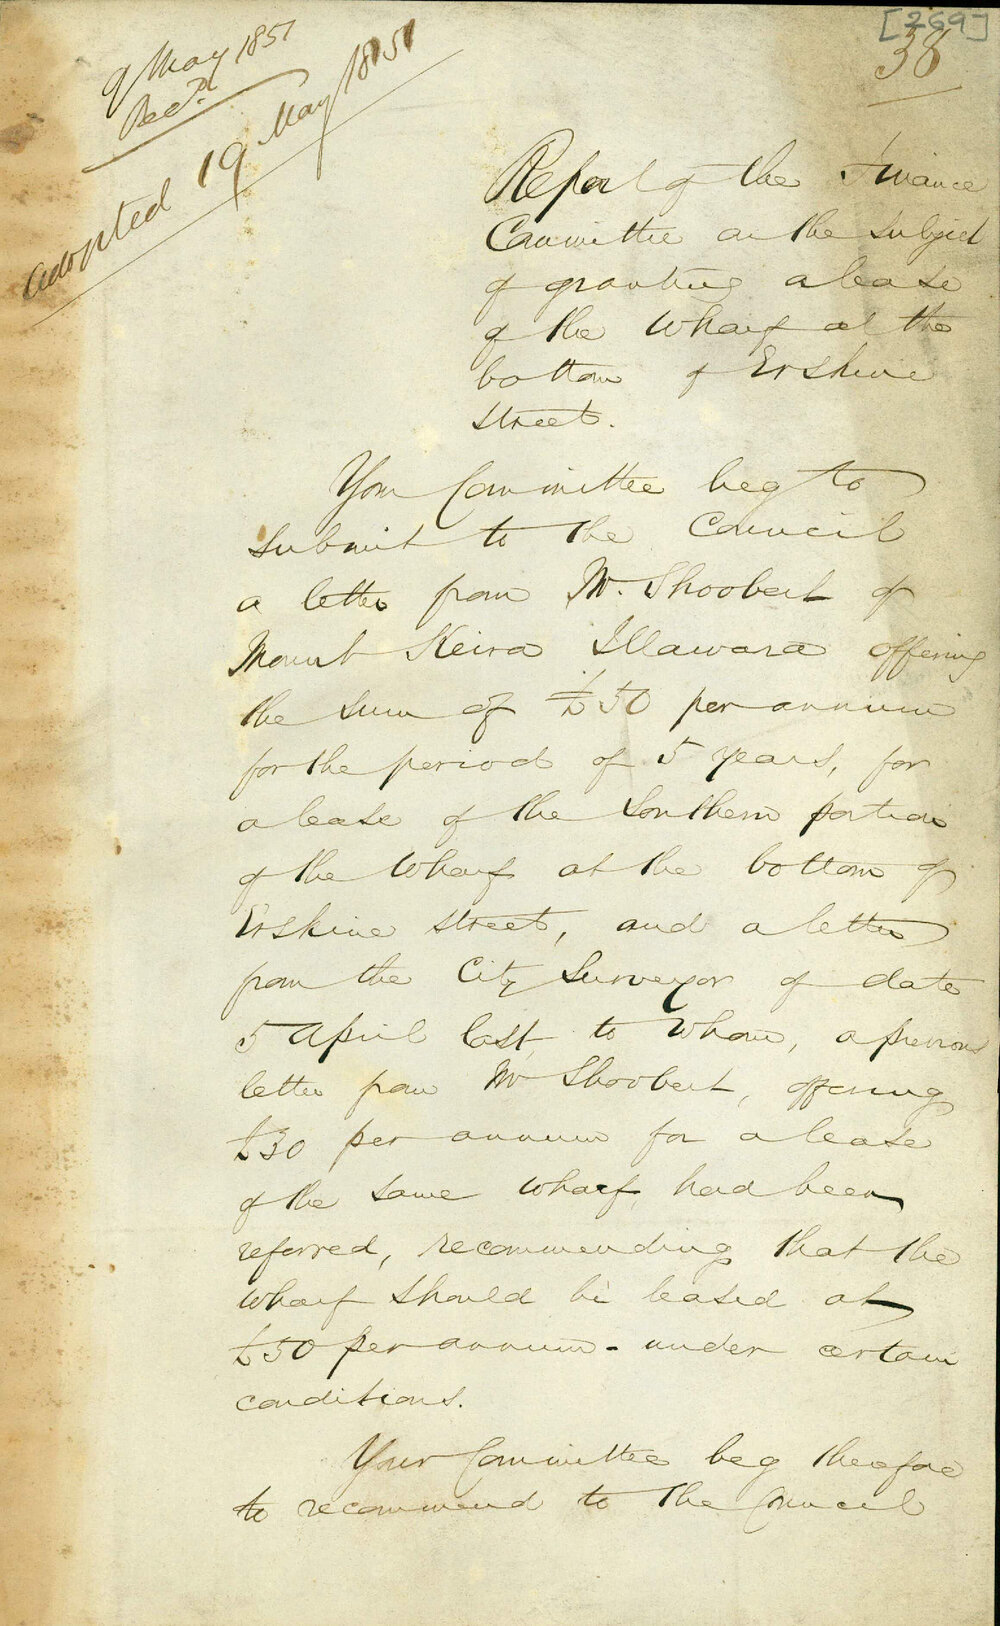 [269]
38
9 May 1851
Recd.
Adopted 19 May 1851
Report of the Finance
Committee on the subject
of granting a lease
of the Wharf at the
bottom of Erskine
Street.
Your Committee beg to
submit to the Council
a letter from Mr. Shoobert of
Mount Keira Illawara offering
the sum of £50 per annum
for the period of 5 years, for
a lease of the Southern portion
of the Wharf at the bottom of
Erskine Street, and a letter
from the City Surveyor of date
5 April last, to whom, a previous
letter from Mr Shoobert, offering
£30 per annum for a lease
of the same wharf, had been
referred, recommending that the
wharf should be leased at
£50 per annum - under certain
conditions.
Your Committee beg therefore
to recommend to the Council